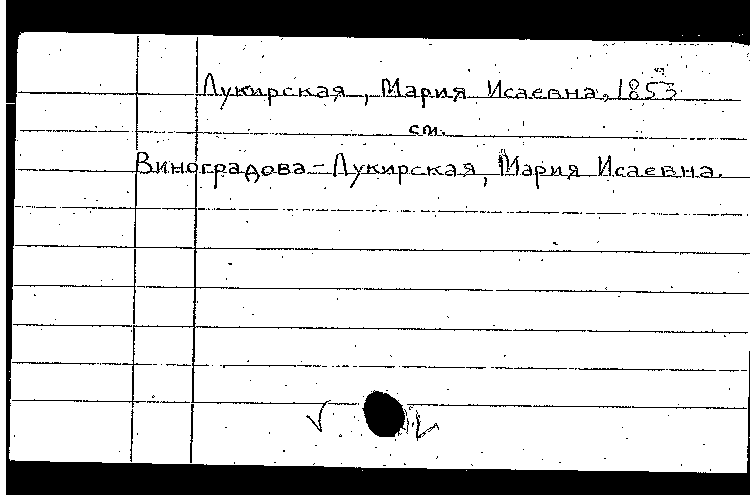 Лукирская, Мария Исаевна, 1853
см.
Виноградова-Лукирская, Мария Исаевна.